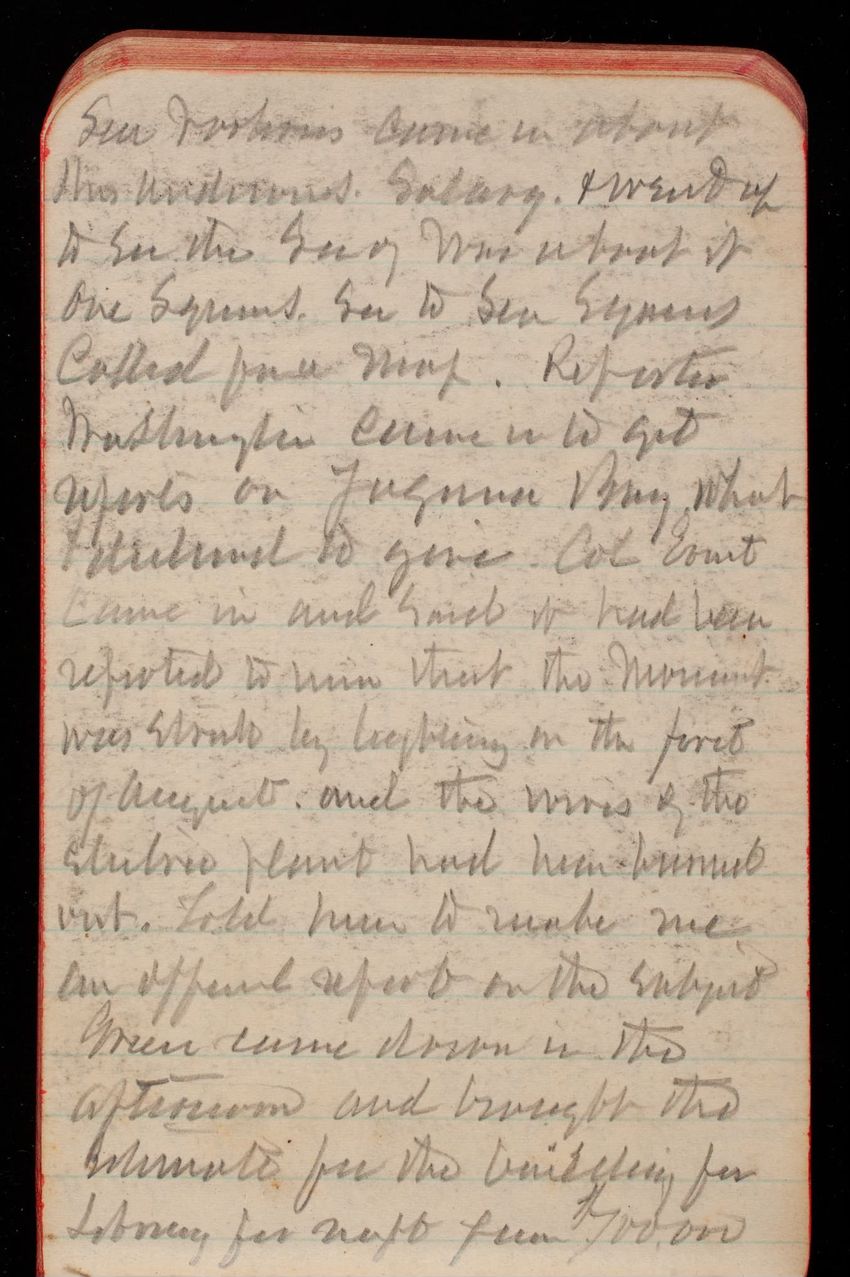 came in about
Mrs Andrews. Salary. & went up
to See the Secy War about it
Called for a Map. Reporter
Washington came in to get
reports on Bay, what
I declined to give. Col Ernst
Came in and Said it had been
reported to him that the Monument
was Struck by lightning on the first
of August. and the wires of the
electric plant had been burned
out. Told him to make me
an official report on the Subject
Green came down in the
afternoon and brought the
estimate for the building for
Library for next year $700.000